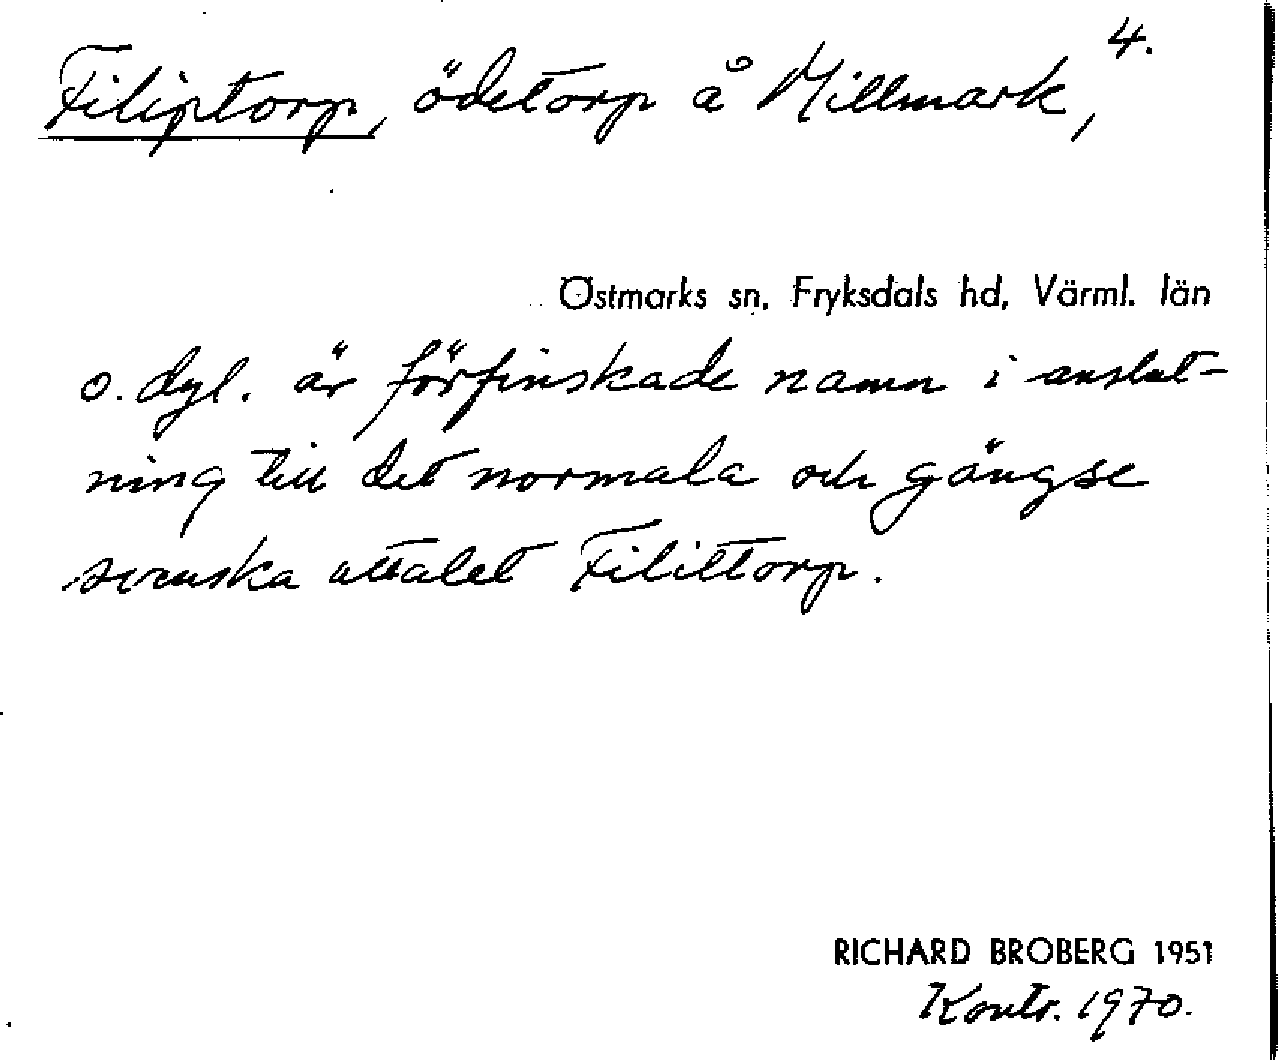 4.
Filiptorp, ödetorp å Millmark,
Östmarks sn, Fryksdals hd, Värml. län
o. dyl. är förfinskade namn i anslut-
ning till det normala och gängse
svenska uttalet Filittorp.
RICHARD BROBERG 1951
Kontr. 1970.